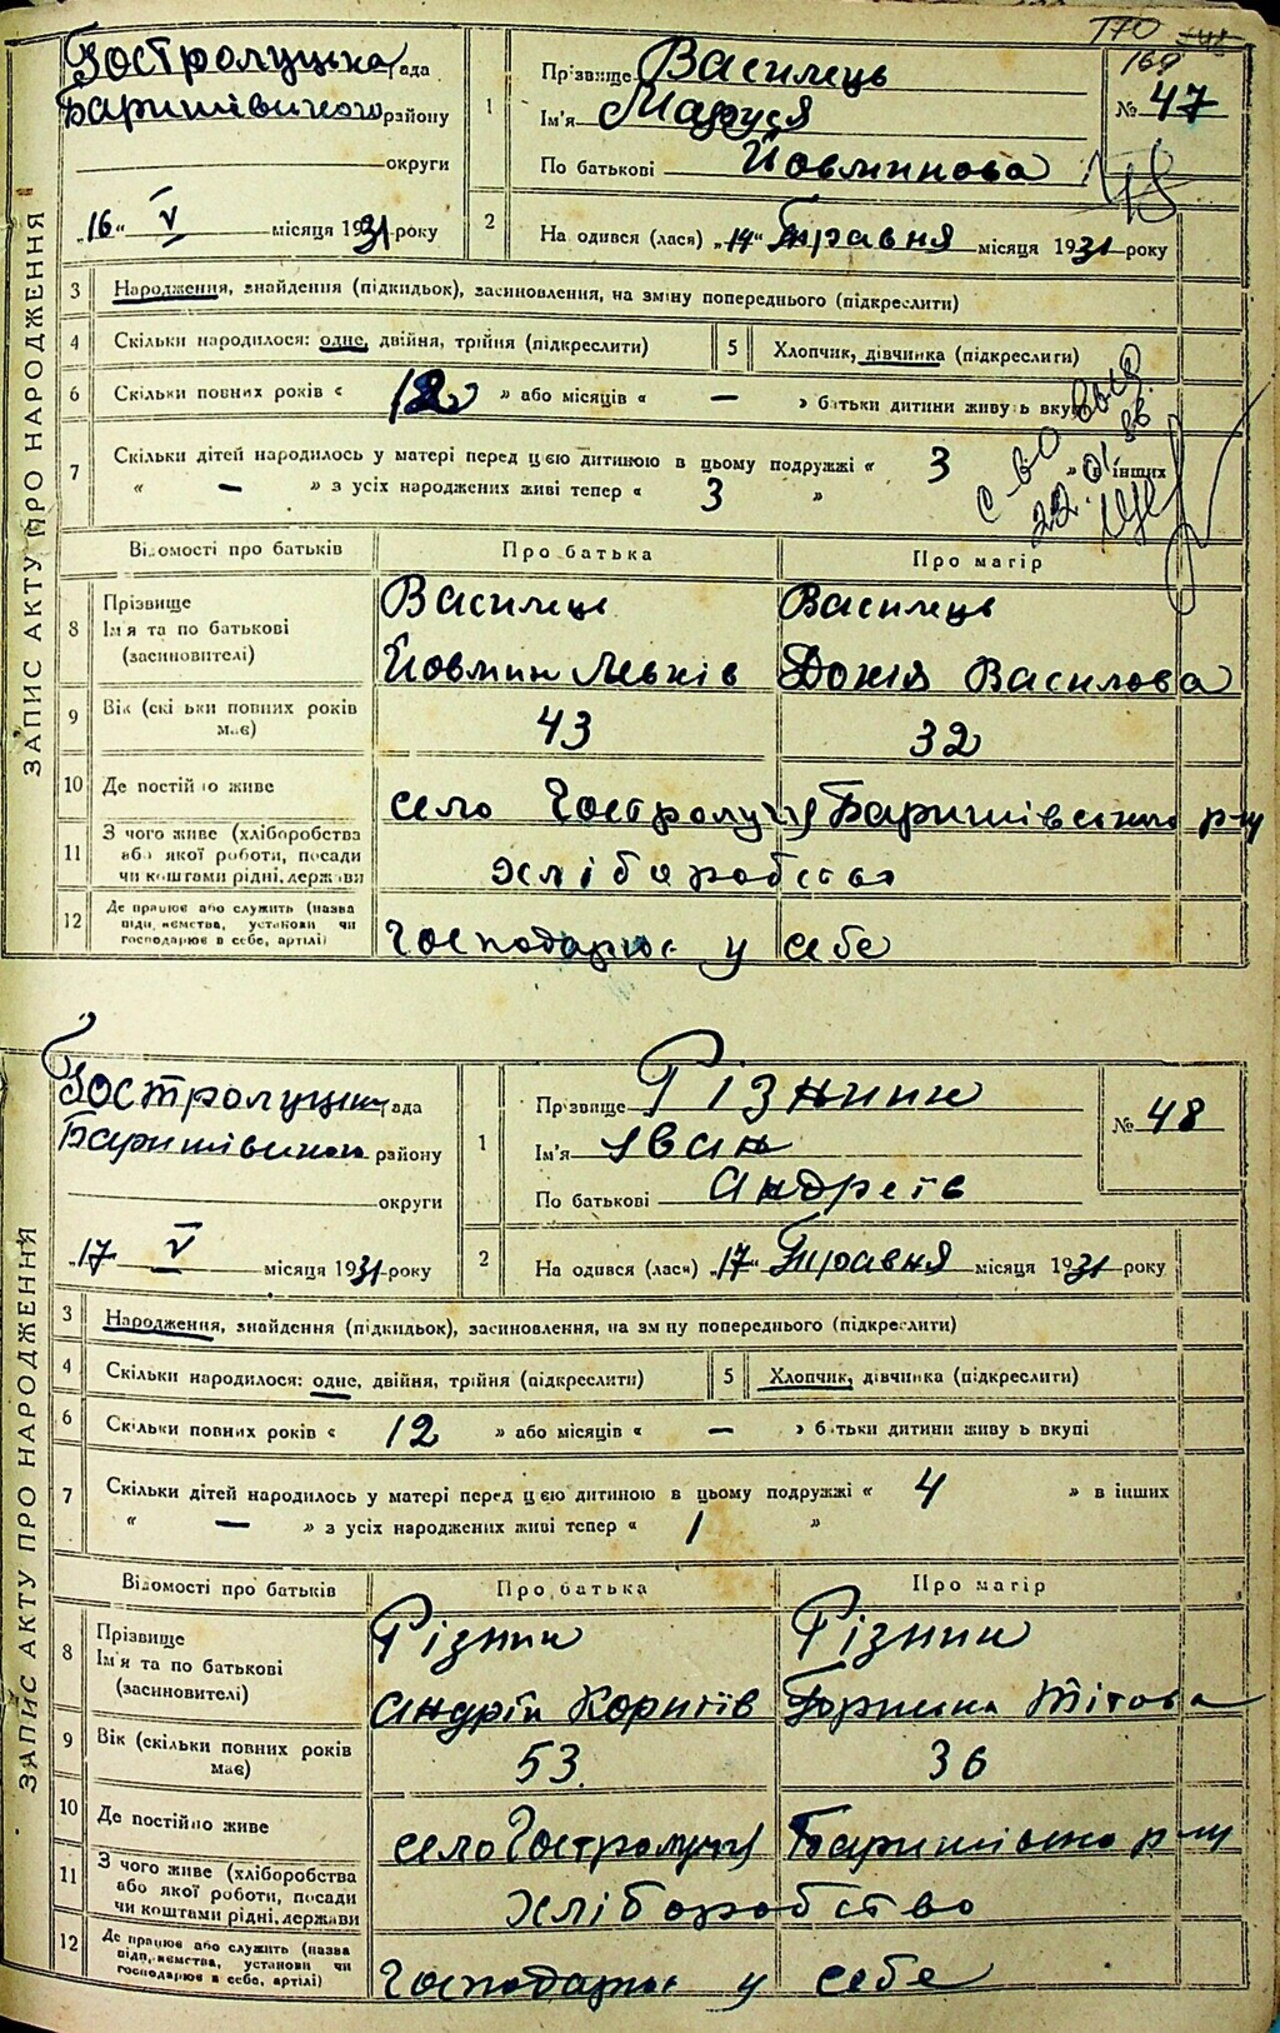 170
169
ЗАПИС АКТУ ПРО НАРОДЖЕННЯ
Гостролуцька рада
Баришівського району
округи
„16“ V місяця 1931 року
1
Прізвище Василець
Ім'я Маруся
По батькові Йовминова
№ 47
2
На одився (лася) „14“ Травня місяця 1931 року
3 Народження, знайдення (підкидьок), засиновлення, на зміну попереднього (підкреслити)
4 Скільки народилося: одне, двійня, трійня (підкреслити) 5 Хлопчик, дівчинка (підкреслити)
6 Скільки повних років « 12 » або місяців « — » батьки дитини живуть вкупі
7 Скільки дітей народилось у матері перед цією дитиною в цьому подружжі « 3 » в інших
« — » з усіх народжених живі тепер « 3 »
Відомості про батьків Про батька Про матір
8 Прізвище Василець Василець
Ім'я та по батькові
(засиновителі) Йовмин Левків Докія Василова
9 Вік (скільки повних років має) 43 32
10 Де постійно живе село Гостролуччя Баришівського р-ну
11 З чого живе (хліборобства
або якої роботи, посади
чи коштами рідні, держави хліборобство
12 Де працює або служить (назва
підприємства, установи чи
господарює в себе, артілі) Господарює у себе
ЗАПИС АКТУ ПРО НАРОДЖЕННЯ
Гостролуцька рада
Баришівського району
округи
„17“ V місяця 1931 року
1
Прізвище Різник
Ім'я Іван
По батькові Андреїв
№ 48
2
На одився (лася) „17“ Травня місяця 1931 року
3 Народження, знайдення (підкидьок), засиновлення, на зміну попереднього (підкреслити)
4 Скільки народилося: одне, двійня, трійня (підкреслити) 5 Хлопчик, дівчинка (підкреслити)
6 Скільки повних років « 12 » або місяців « — » батьки дитини живуть вкупі
7 Скільки дітей народилось у матері перед цією дитиною в цьому подружжі « 4 » в інших
« — » з усіх народжених живі тепер « 1 »
Відомості про батьків Про батька Про матір
8 Прізвище Різник Різник
Ім'я та по батькові
(засиновителі) Андрій Корніїв Горпина Тітова
9 Вік (скільки повних років має) 53 36
10 Де постійно живе село Гостролуччя Баришівського р-ну
11 З чого живе (хліборобства
або якої роботи, посади
чи коштами рідні, держави хліборобство
12 Де працює або служить (назва
підприємства, установи чи
господарює в себе, артілі) Господарює у себе